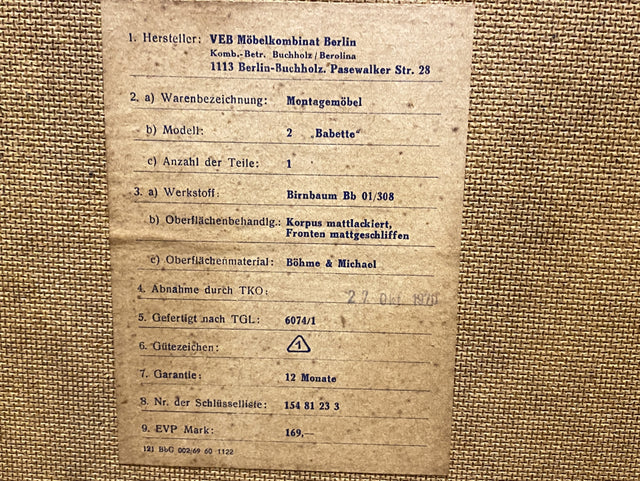 1. Hersteller: VEB Möbelkombinat Berlin
Komb.-Betr. Buchholz/Berolina
1113 Berlin-Buchholz. Pasewalker Str. 28
2. a) Warenbezeichnung: Montagemöbel
b) Modell: 2 „Babette"
c) Anzahl der Teile: 1
3. a) Werkstoff: Birnbaum Bb 01/308
b) Oberflächenbehandlg.: Korpus mattlackiert,
Fronten mattgeschliffen
c) Oberflächenmaterial: Böhme & Michael
4. Abnahme durch TKO: 27 Okt. 1970
5. Gefertigt nach TGL: 6074/1
6. Gütezeichen: 1
7. Garantie: 12 Monate
8. Nr. der Schlüsselliste: 154 81 23 3
9. EVP Mark: 169,—
(2) BbG 002/69 60 1122